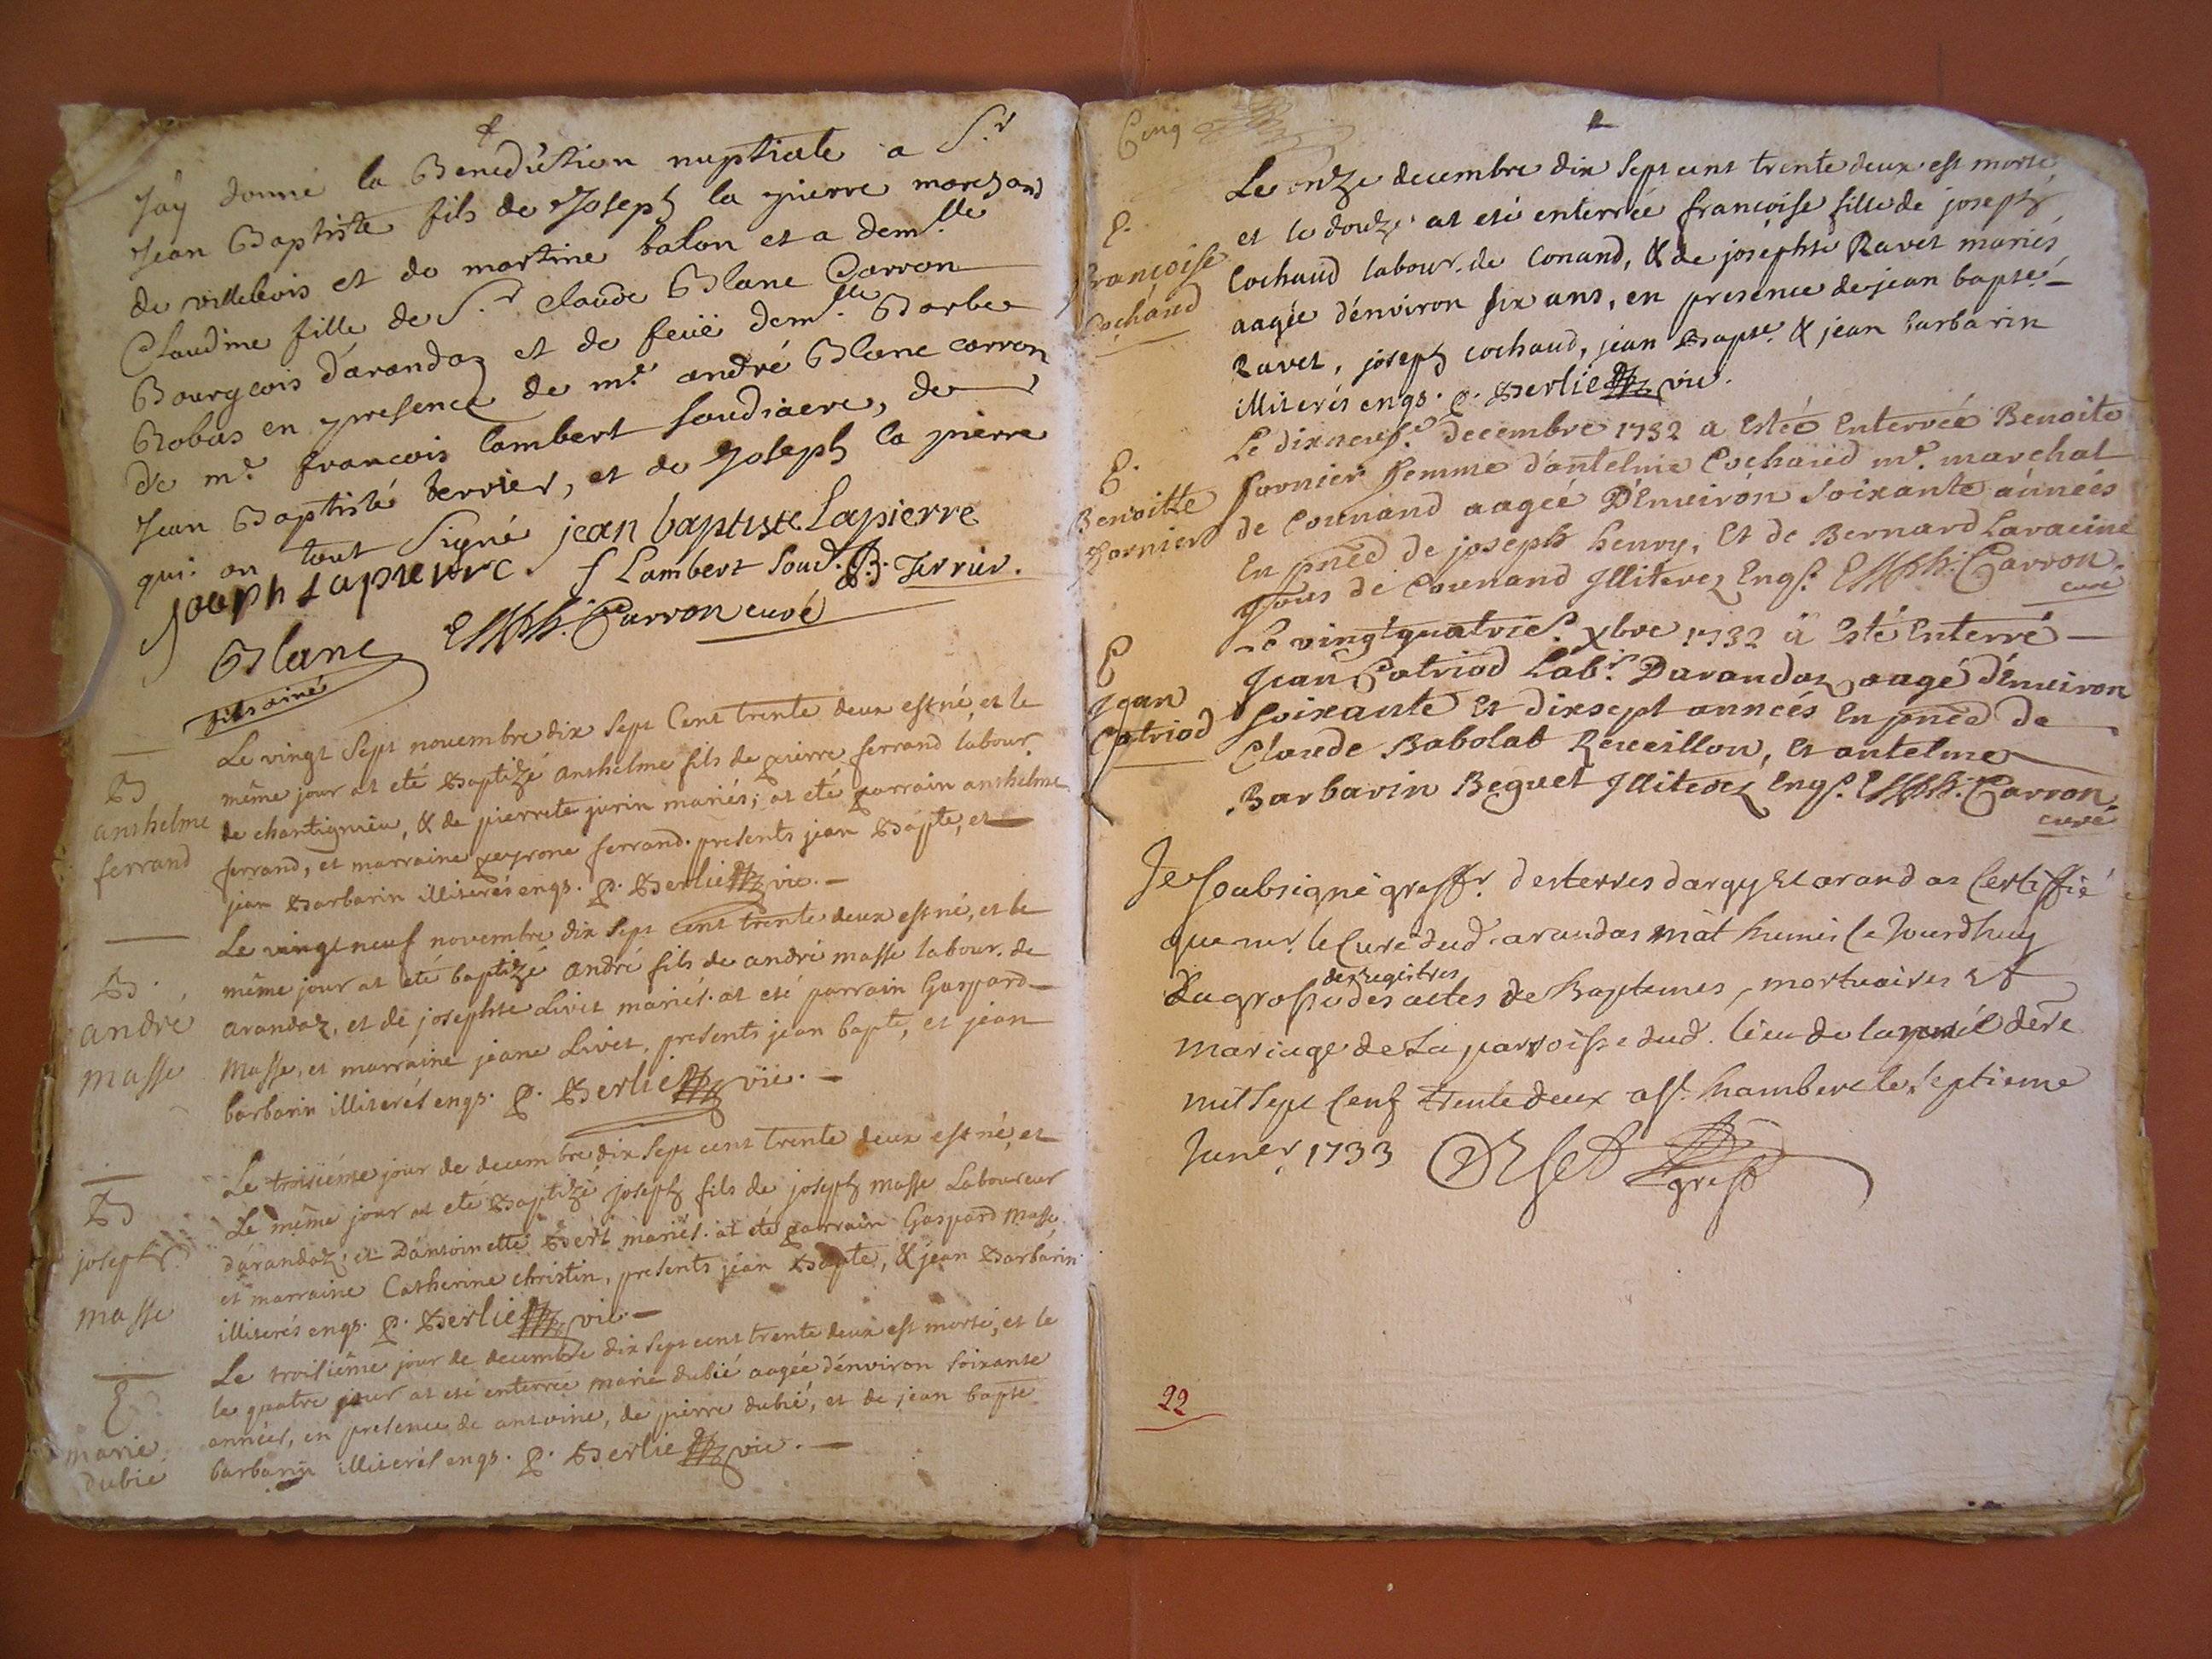 Jay donné la Benediction nuptiale a S.r
Jean Baptiste fils de Joseph la pierre marchand
de villebois et de martine balon et a dem.lle
Claudine fille de S.r claude Blanc Carron
Bourgeois d'arandaz et de feüe dem.lle Barbe
Bobus en presence de m.e andré Blanc carron
de m.e francois lambert soudiacre, de
Jean Baptiste terrier, et de Joseph la pierre
qui on tout Signé jean baptiste Lapierre
Joseph Lapierre f Lambert Soud. J.B. Terrier.
Blanc Carron curé
fils ainé
B
anthelme
ferrand
Le vingt Sept novembre dix Sept Cent trente deux est né, et le
même jour at eté Baptizé anthelme fils de pierre ferrand labour.
de chantignieu, & de pierrete jurin mariés; at eté parrain anthelme
ferrand, et marraine peyrone ferrand. presents jean Bapte, et
jean Barbarin illiterés engs. p. Berlie vic.
B.
andre
masse
Le vingt neuf novembre dix Sept Cent trente deux est né, et le
même jour at eté baptizé andré fils de andré masse labour. de
arandaz, et de josephte Livet mariés. at eté parrain Gaspard
Masse, et marraine jeane Livet, presents jean bapte, et jean
barbarin illiterés engs. p. Berlie vic.
B
joseph
masse
Le troisième jour de decembre dix Sept cent trente deux est né, et
Le même jour at eté Baptizé joseph fils de joseph masse Laboureur
d'arandaz, et D'antoinette Bert mariés. at été parrain Gaspard Masse
et marraine Catherine christin, presents jean Bapte, & jean Barbarin
illiterés engs. p. Berlie vic.
E
marie
dubié
Le troisième jour de decembre dix sept cent trente deux est morte, et le
le quatre jour at eté enterrée marie dubié aagée d'environ soixante
années, en presence de antoine, de pierre dubié, et de jean bapte
barbarin illiterés engs. p. Berlie vic.
Cinq
E.
francoise
Cochaud
Le onze decembre dix Sept cent trente deux est morte,
et le douze at eté enterrée francoise fille de joseph
Cochaud labour. de Conand, & de josephte Ravet mariés
aagée d'environ six ans, en presence de jean bapte.
Ravet, joseph cochaud, jean Bapte. & jean barbarin
illiterés engs. p. Berlie vic.
E.
Benoitte
fornier
Le dixneuf.e decembre 1732 a esté Enterrée Benoite
fornier femme d'antelme Cochaud m.e marchal
de Counand aagée D'Enueiron Soixante années
En pnce de joseph henry, Et de Bernard Laracine
Tous de Counand Jlliterez Engs. Carron
curé
E
Jean
Catriod
Le vingtquatrie.e xbre 1732 a Esté Enterré
Jean Catriod Lab.r Darandaz aagé d'Enueiron
Soixante Et dixsept années En pnce de
Claude Babolat Reueillon, Et antelme
Barbarin Beguet Jlliterez Engs. Carron
curé
Je Soubsigné greff.r des terres dargy Et arandas Certiffie
que mr. le Curé dud. arandas m'at humis ce Jourdhuy
La grosse des actes de Baptemes, mortuaires Et
des registres
mariage de La parroisse dud. lieu de lannée dere
mil sept Cent trente deux a St. hambert le septieme
Janer. 1733
greff
22